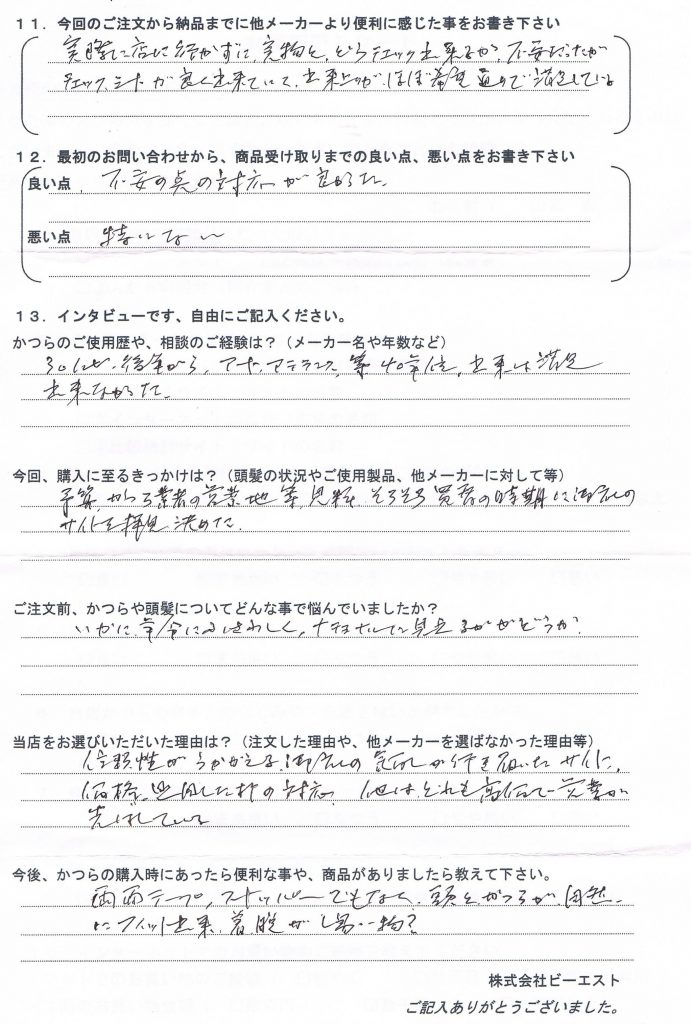 １１．今回のご注文から納品までに他メーカーより便利に感じた事をお書き下さい
実際に店に行かずに、実物を、どうチェック出来るか、不安だったが
チェックシートが良く出来ていて、出来上がりがほぼ希望通りで満足している
１２．最初のお問い合わせから、商品受け取りまでの良い点、悪い点をお書き下さい
良い点 不安の点の対応が良かった。
悪い点 特にない
１３．インタビューです、自由にご記入ください。
かつらのご使用歴や、相談のご経験は？（メーカー名や年数など）
30代 後半から、アート、アデランス、等 40年位、出来は満足
出来なかった。
今回、購入に至るきっかけは？（頭髪の状況やご使用製品、他メーカーに対して等）
予算、かつら業者の営業 等 そろそろ買替の時期に御社の
サイトを拝見 決めた。
ご注文前、かつらや頭髪についてどんな事で悩んでいましたか？
いかに、年令にふさわしく、ナチュナルに見えるかがどうか？
当店をお選びいただいた理由は？（注文した理由や、他メーカーを選ばなかった理由等）
信頼性がうかがえる御社の 行き届いたサイト、
価格、 の対応 他は、どれも高価で営業が
先ばしている
今後、かつらの購入時にあったら便利な事や、商品がありましたら教えて下さい。
両面テープ、ストッパーでもなく、頭と、かつらが、自然
にフィット出来、着脱がし易い物？
株式会社ビーエスト
ご記入ありがとうございました。